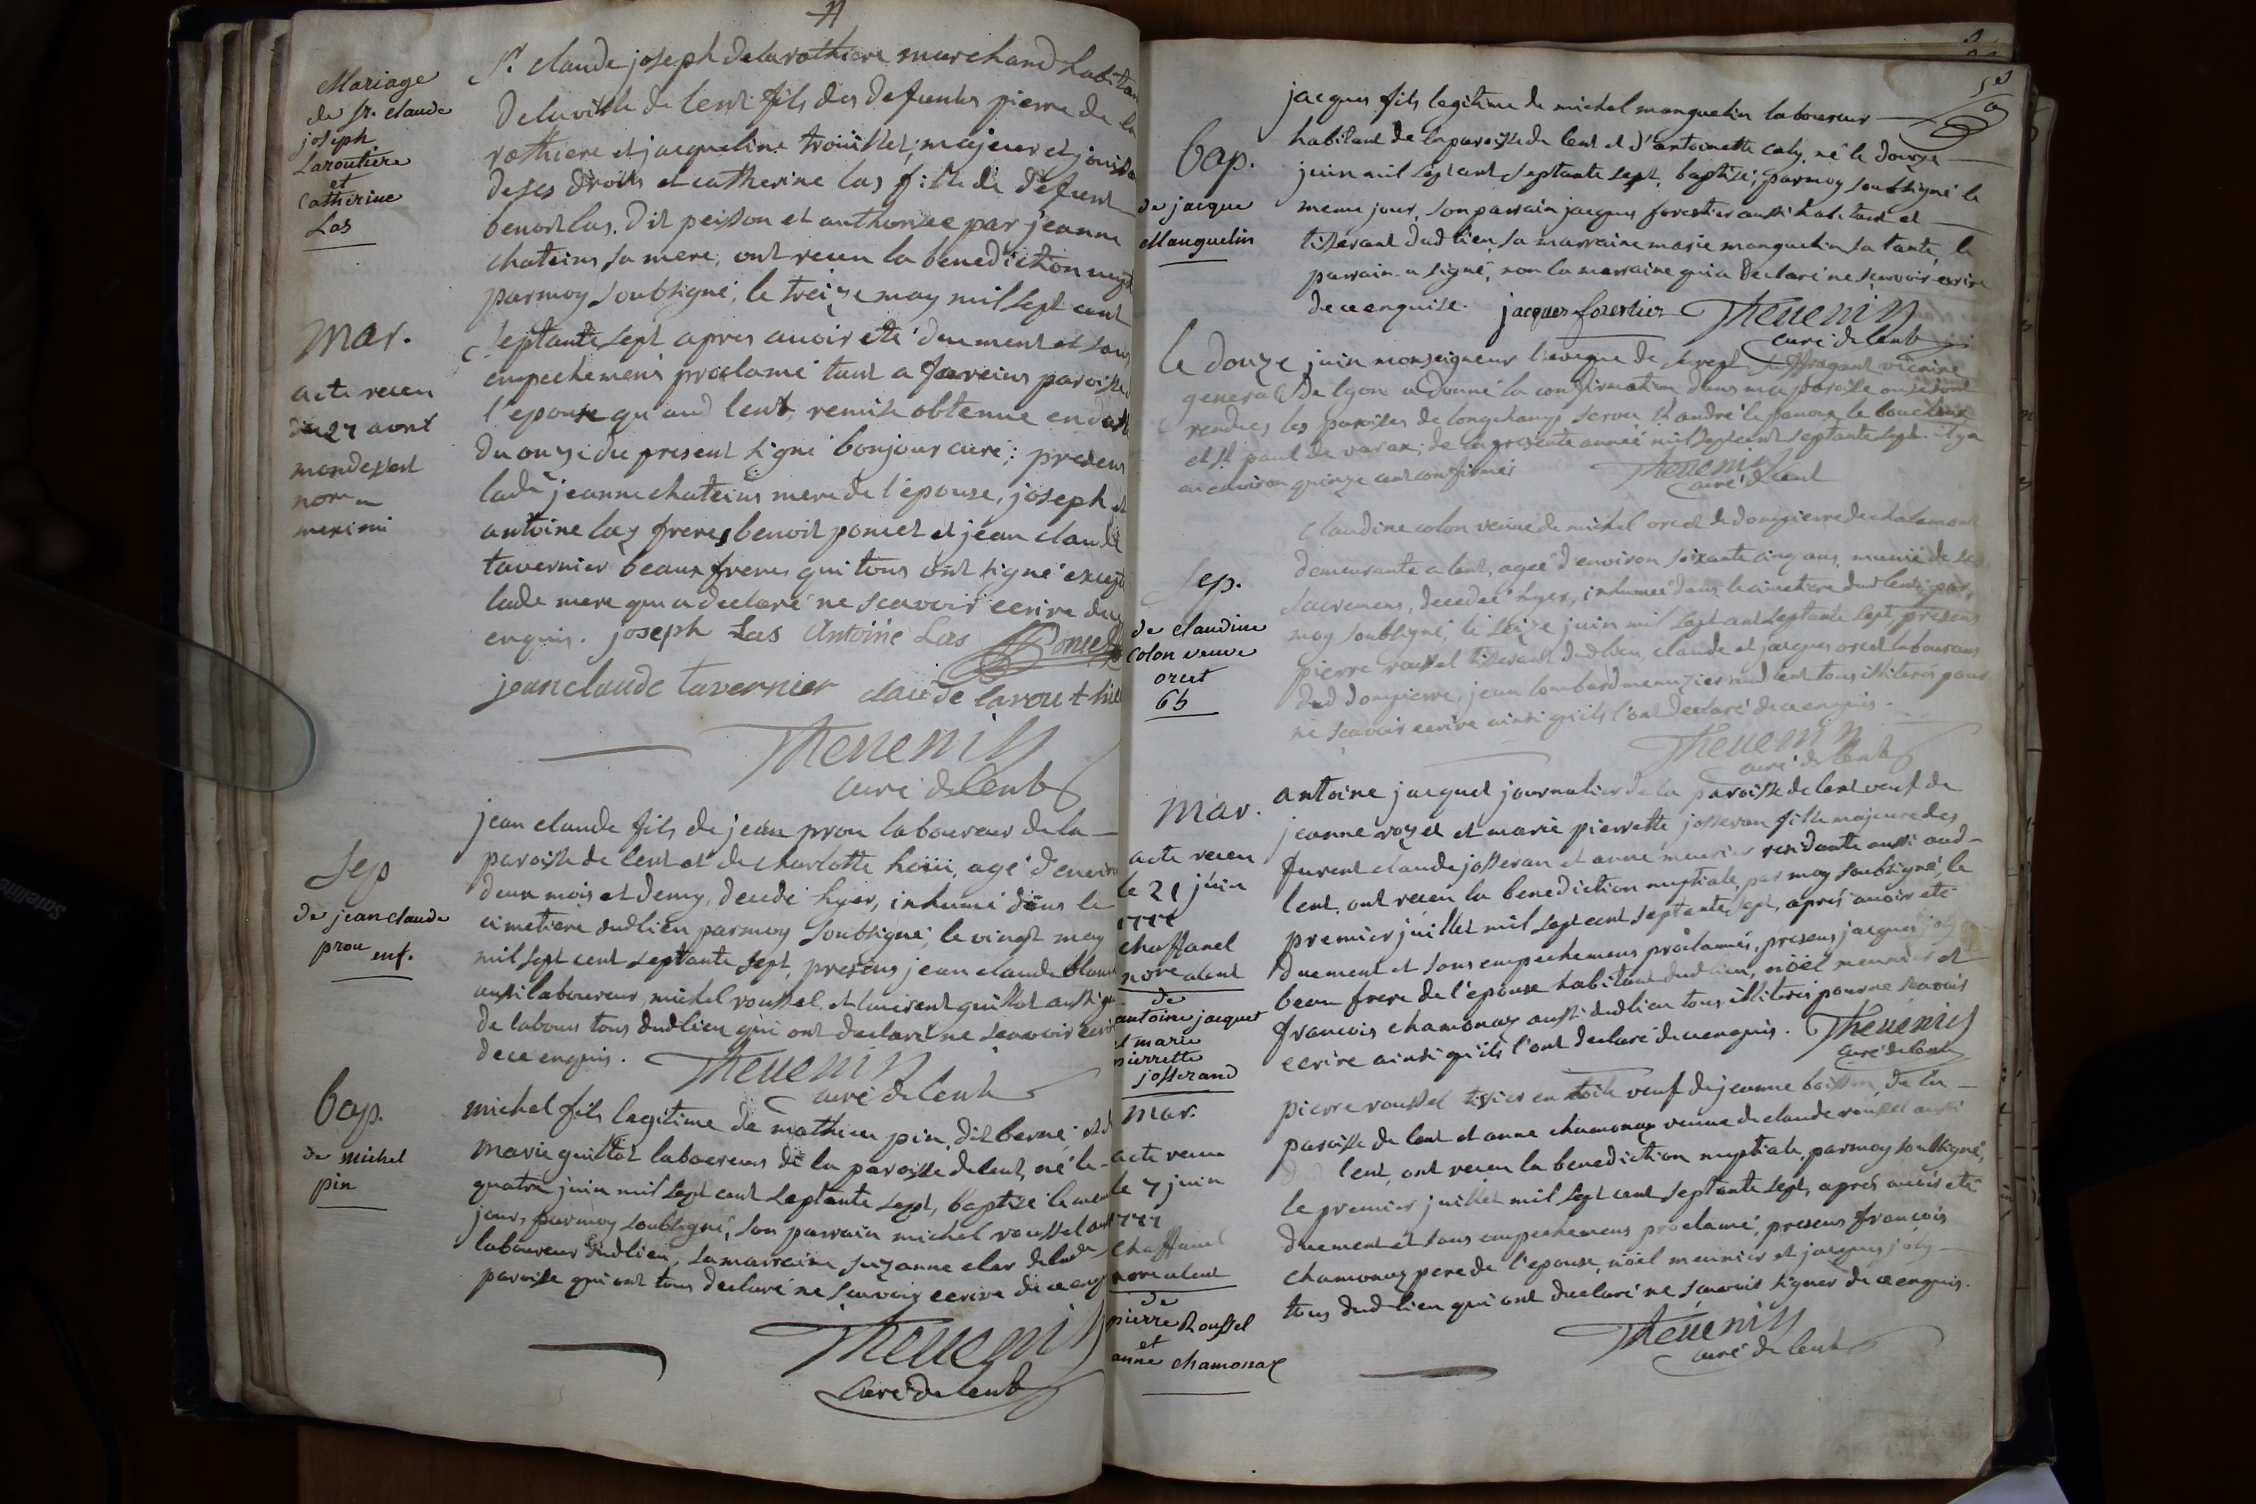 Mariage
de Sr. claude
joseph
Laroutiere
et
Catherine
Las
Sr. claude joseph delarothiere marchand habitan
delaville de lent fils des defuntes pierre de la
rothiere et jacqueline troüillet, majeur et
de ses droits et catherine las fille de défunt
benoit las dit peisson et authorisee par jeanne
chateins sa mere, ont receu la benediction
parmoy soubsigné, le treize may mil sept cent
mar.
acte receu
27 avril
septante sept apres avoir eté duement et sans
empechemens proclamé tant a paroisse
l'epouse qu'aud lent, remise obtenue en
du onze du present signé bonjour curé; presens
lade jeanne chateins mere de l'épouse, joseph et
antoine las freres benoit poncet et jean claude
tavernier beaux freres qui tous ont signé
lade mere qui a declaré ne scavoir ecrire
enquis. joseph Las Antoine Las Poncet
jean claude tavernier claude
Thevenin
curé de Lent
Sep
de jean claude
prou enf.
jean claude fils de jean prou laboureur de la
paroisse de lent et de charlotte agé d'environ
deux mois et demy, decedé hyer, inhumé dans le
cimetiere dudlieu parmoy soubsigné, le vingt may
mil sept cent septante sept, presens jean claude
aussi laboureur, michel roussel et guillot aussi
de labours tous dudlieu qui ont declaré ne scavoir
dece enquis. Thevenin
curé de Lent
bap.
de michel
pin
michel fils legitime de mathieu pin, dit berne, et de
marie guillot laboureurs de la paroisse de lent, né le
quatre juin mil sept cent septante sept, baptizé le meme
jour, parmoy soubsigné, son parrain michel roussel
laboureur dudlieu, sa marraine suzanne clar de lade
paroisse qui ont tous declaré ne scavoir ecrire dece
Thevenin
Curé de Lent
bap.
de jacque
Manguelin
jacques fils legitime de michel manguelin laboureur
habitant de la paroisse de lent et d'antoinette né le douze
juin mil sept cent septante sept, baptizé, parmoy soubsigné le
meme jour, son parrain jacques forestier aussi habitant et
tisserant dud lieu sa marraine marie manguelin sa tante, le
parrain a signé, non la marraine qui a declaré ne scavoir ecrire
dece enquise. jacques forestier Thevenin
curé de lent
le douze juin monseigneur l'eveque de suffragant vicaire
general de lyon a donné la confirmation dans ma paroisse ou se sont
rendues les paroisses de longchamp servas St andré le panoux le bouchoux
et St paul de varax, de la presente année mil sept cent septante sept. il y a
eu environ quinze cent confirmés Thevenin
curé de Lent
Sep.
de claudine
Colon veuve
orcet
65
Claudine colon veuve de michel orcet de dompierre de chalamont
demeurante a lent, agée d'environ soixante cinq ans, munie de ses
sacremens, decedée hyer, inhumée dans le cimetiere dud lent, par
moy soubsigné, le seize juin mil sept cent septante sept, presens
pierre roussel tisserant dudlieu, claude et jacques orcet laboureurs
dud dompierre, jean lombard menuzier aud lent tous illiterés pour
ne scavoir ecrire ainsi qu'ils l'ont declaré dece enquis.
Thevenin
curé de lent
mar.
acte receu
le 21 juin
1777
Chaffanel
nore a lent
de
antoine jacquet
et marie
pierrette
josserand
antoine jacquet journalier de la paroisse de lent veuf de
jeanne et marie pierrette josseran fille majeure des
furent claude josseran et anne meunier residante aussi aud
lent, ont receu la benediction nuptiale, par moy soubsigné, le
premier juillet mil sept cent septante sept, aprés avoir eté
duement et sans empechemens proclamés, presens jacques
beau frere de l'epouse habitant dud lieu, nöel meunier et
francois chamonay aussi dudlieu tous illiterés pour ne scavoir
ecrire ainsi qu'ils l'ont declaré dece enquis. Thevenin
curé de lent
mar.
acte receu
le 7 juin
1777
Chaffanel
nore a lent
de
pierre Roussel
et
anne chamonay
pierre roussel tissier en toile veuf de jeanne boisson de la
paroisse de lent et anne chamonay veuve de claude roussel aussi
lent, ont receu la benediction nuptiale, parmoy soubsigné,
le premier juillet mil sept cent septante sept, aprés avoir eté
duement et sans empechemens proclamé, presens francois
chamonay pere de l'epouse, nöel meunier et jacques joly
tous dud lieu qui ont declaré ne scavoir signer dece enquis.
Thevenin
curé de lent